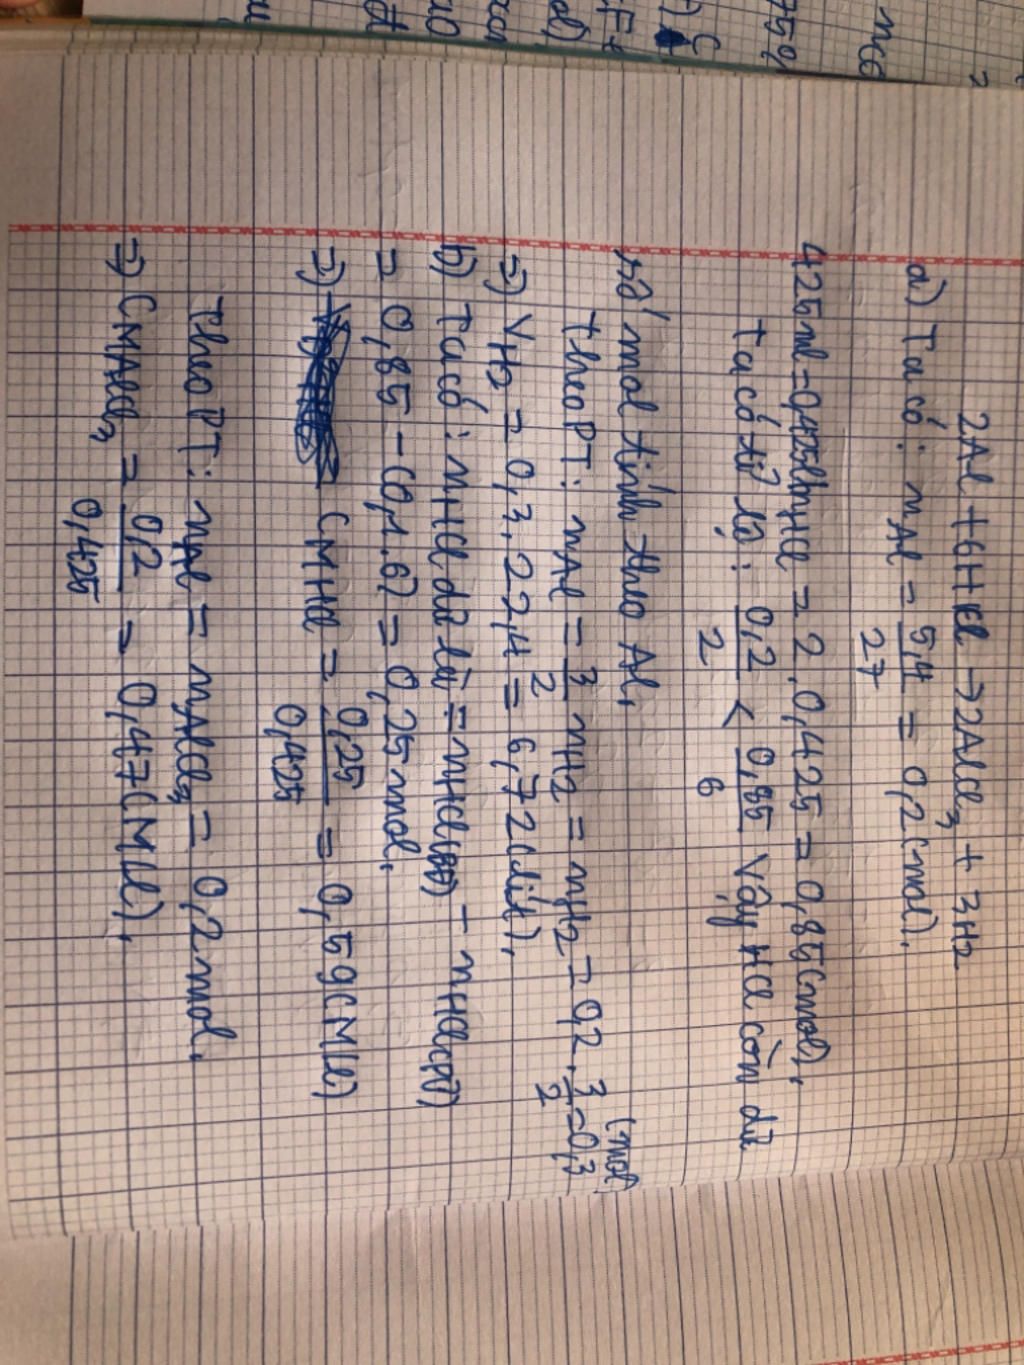 2Al + 6HCl → 2AlCl3 + 3H2
a) Ta có: nAl = 5,4/27 = 0,2 (mol).
425ml = 0,425l nHCl = 2.0,425 = 0,85 (mol),
Ta có tỉ lệ: 0,2/2 < 0,85/6 Vậy HCl còn dư
số mol tính theo Al,
theo PT: nAl = 3/2 nH2 = nH2 = 0,2.3/2 = 0,3 (mol)
=) VH2 = 0,3.22,4 = 6,72 (lít),
b) Ta có: nHCl dư là: = nHCl(bđ) - nHCl(pư)
= 0,85 - (0,1.6) = 0,25 mol,
=) CMHCl = 0,25/0,425 = 0,59 (M(l)
Theo PT: nAl = nAlCl3 = 0,2 mol.
=) CMAlCl3 = 0,2/0,425 = 0,47 (M(l),
75%